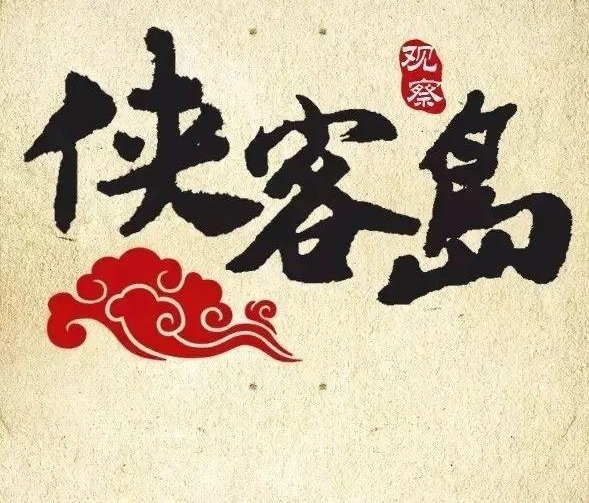 侠客岛
观察